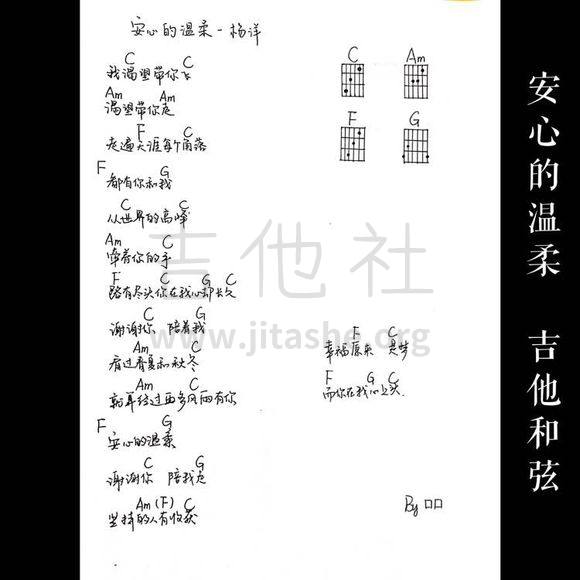 安心的温柔-杨洋
C C
我渴望带你飞
Am Am
渴望带你走
F C
走遍天涯每个角落
F G
都有你和我
C C
从世界的高峰
Am C
牵着你的手
F C G C
路有尽头你在我心却长久
C G
谢谢你 陪着我
Am C
看过春夏和秋冬
Am C
就算经过再多风雨有你
F G
安心的温柔
C G
谢谢你 陪我走
Am (F) C
坚持的人有收获
C Am
F G
F C
幸福原来 是梦
F G C
而你在我心上头
By 口口
吉他社
www.jitashe.org
安心的温柔 吉他和弦